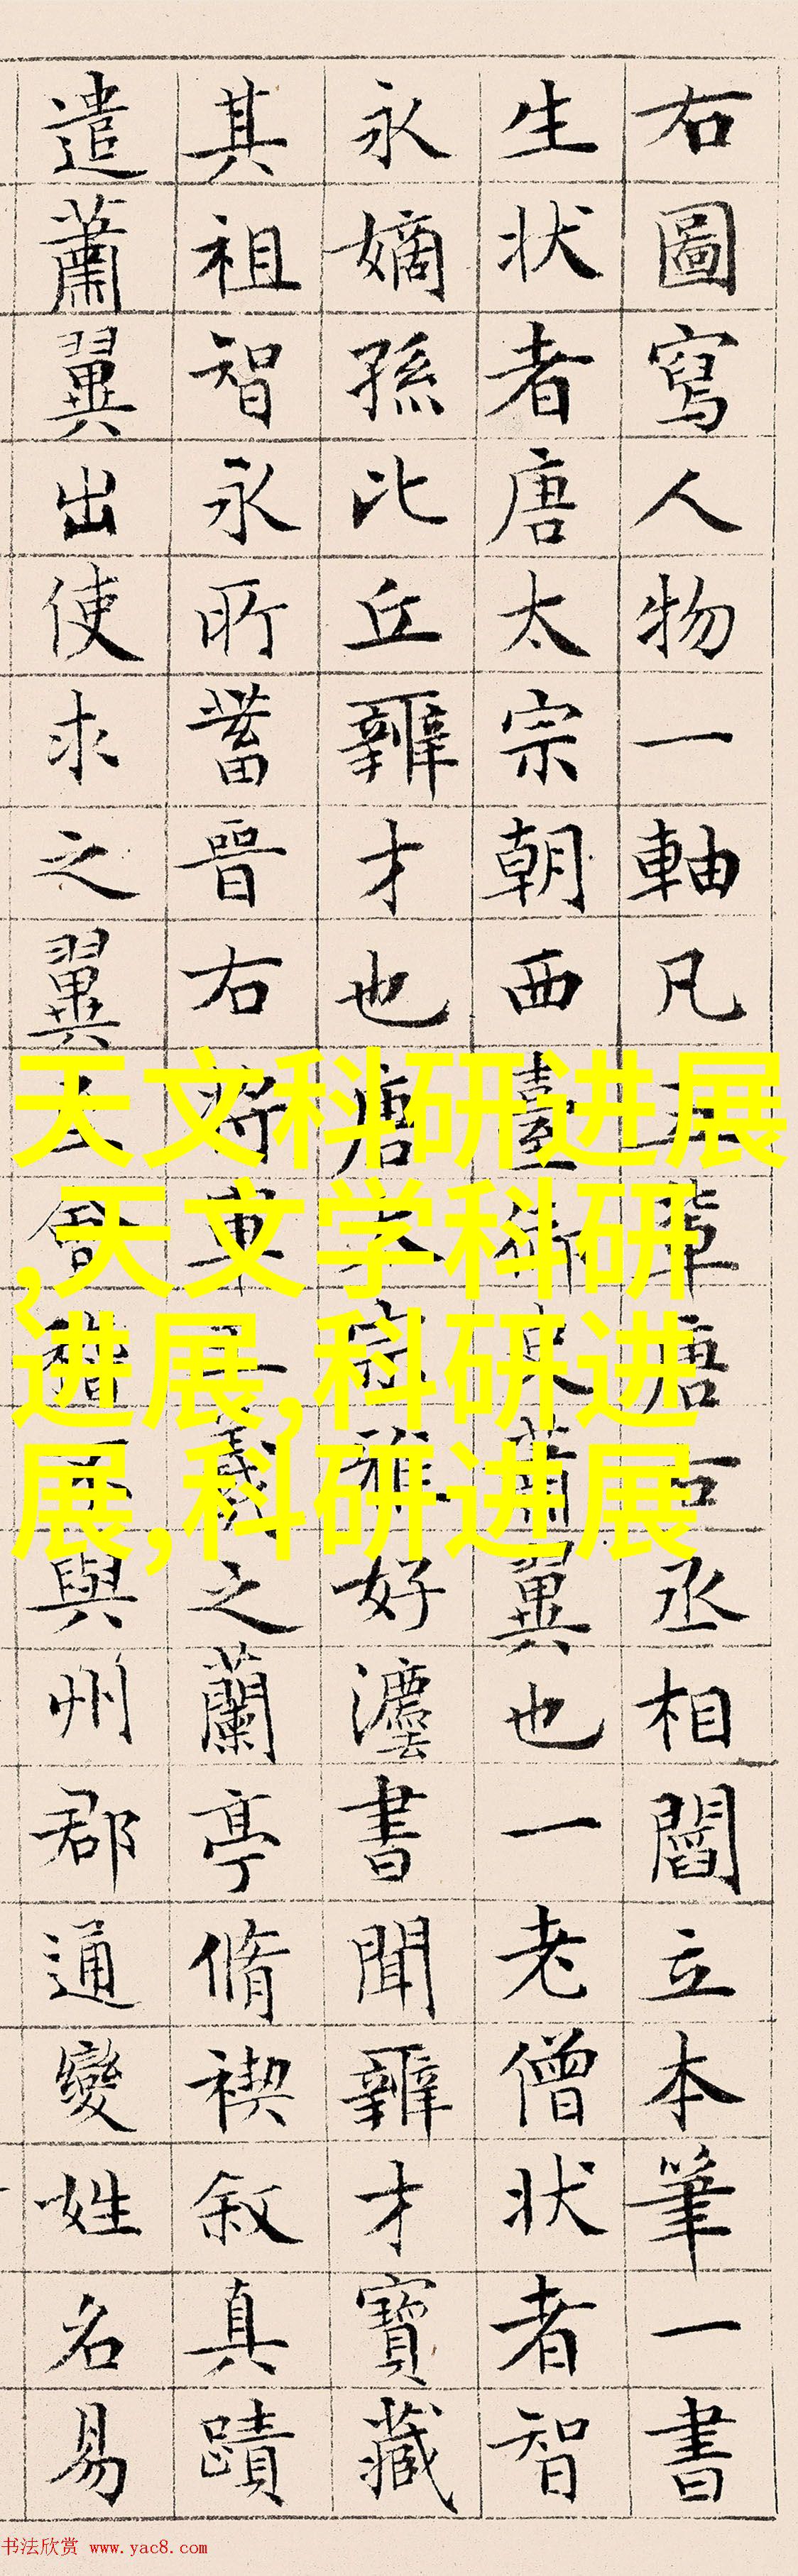 右圖寫人物一軸凡輩唐右丞相閻立本筆一書
生状者唐太宗朝西臺御史蕭翼也一老僧状者智
永嫡孫比丘辨才也唐太宗雅好灋書聞辨才寶藏
其祖智永所蓄晉右將軍王羲之蘭亭脩禊叙真蹟
遣蕭翼出使求之翼會稽與州郡通變姓名易
天文科研进展
,天文学科研
进展,科研进
展,科研进展
书法欣赏 www.yac8.com